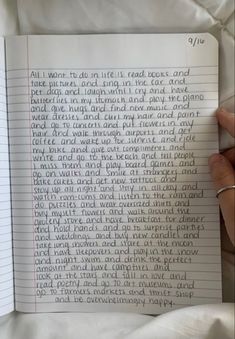 9/16
All I want to do in life is read books and
take pictures and sing in the car and
pet dogs and laugh until I cry and have
butterflies in my stomach and play the piano
and give hugs and find new music and
wear dresses and curl my hair and paint
and go to concerts and put flowers in my
hair and walk through airports and get
coffee and wake up for sunrise and ride
my bike and give out compliments and
write and go to the beach and tell people
I miss them and play board games and
go on walks and smile at strangers and
bake cakes and get new tattoos and
stay up all night and stay in all day and
watch rom-coms and listen to the rain and
do puzzles and wear oversized shirts and
buy myself flowers and walk around the
grocery store and have breakfast for dinner
and hold hands and go to surprise parties
and weddings and buy new candles and
take long showers and stare at the moon
and have sleepovers and play in the snow
and night swim and drink the perfect
amount and have campfires and
look at the stars and fall in love and
read poetry and go to art museums and
go to farmers markets and thrift shop
and be overwhelmingly happy.